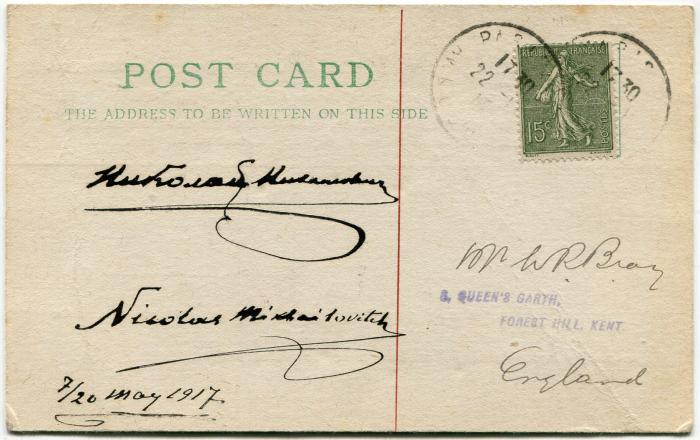 POST CARD
THE ADDRESS TO BE WRITTEN ON THIS SIDE
Николай Михайлович
Nicolas Mikhailovitch
7/20 May 1917.
REPUBLIQUE FRANÇAISE
15c
POSTES
PARIS
17 30
22
17 30
Mr W R Bray
8, QUEEN'S GARTH,
FOREST HILL, KENT.
England